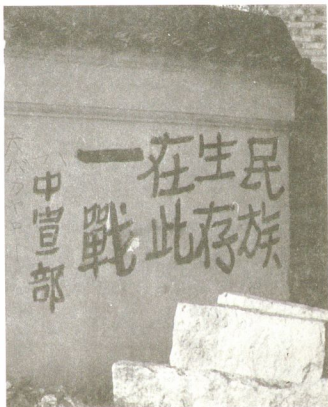 民族
生存
在此
一戰
中宣部